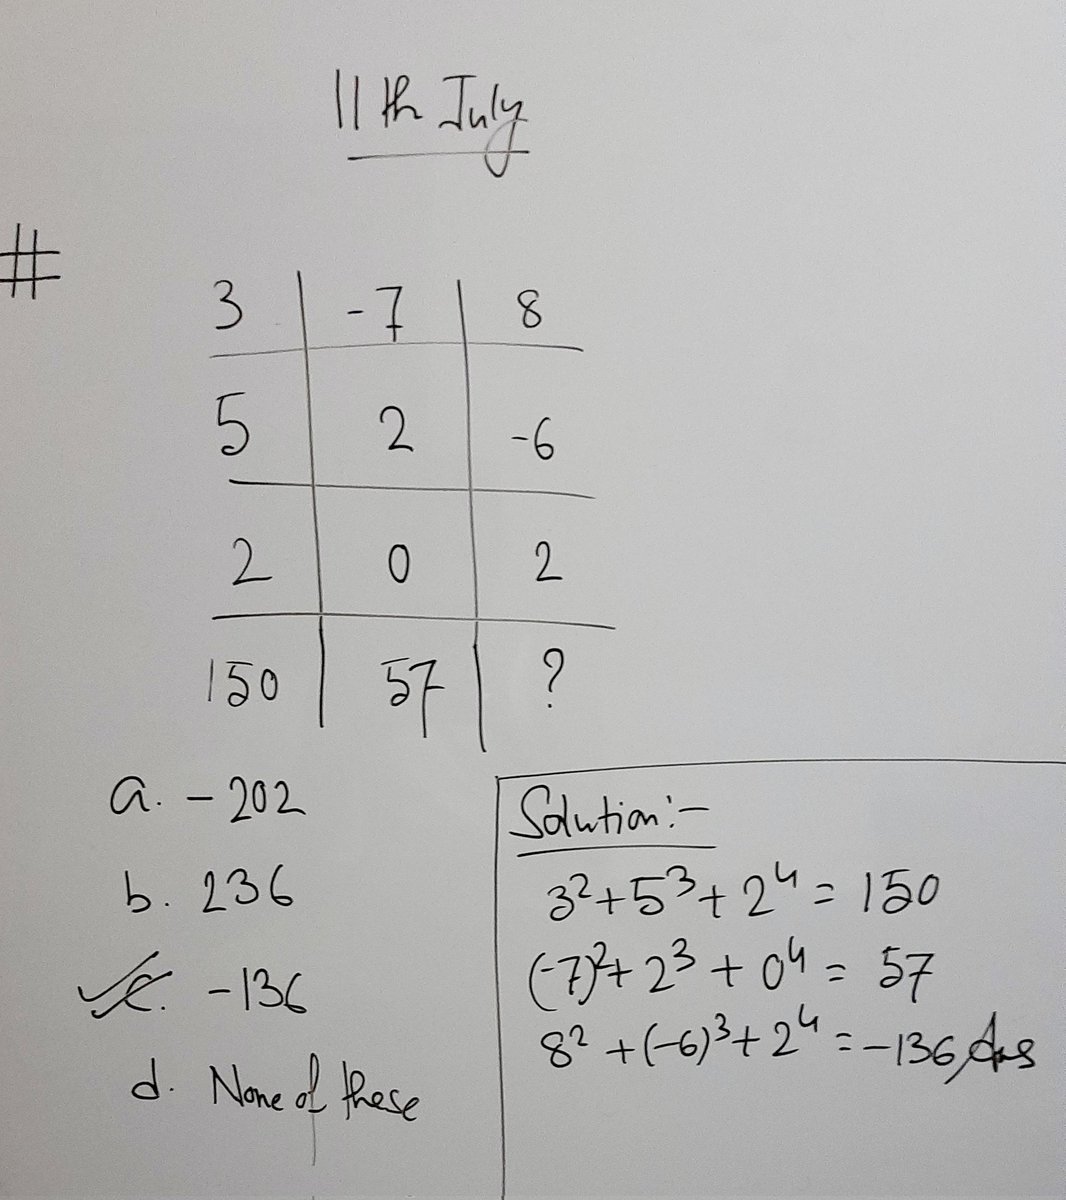 11th July
#
3 | -7 | 8
5 | 2 | -6
2 | 0 | 2
150 | 57 | ?
a. -202
b. 236
c. -136
d. None of these
Solution:-
3²+5³+2⁴ = 150
(-7)²+2³+0⁴ = 57
8²+(-6)³+2⁴ = -136, Ans